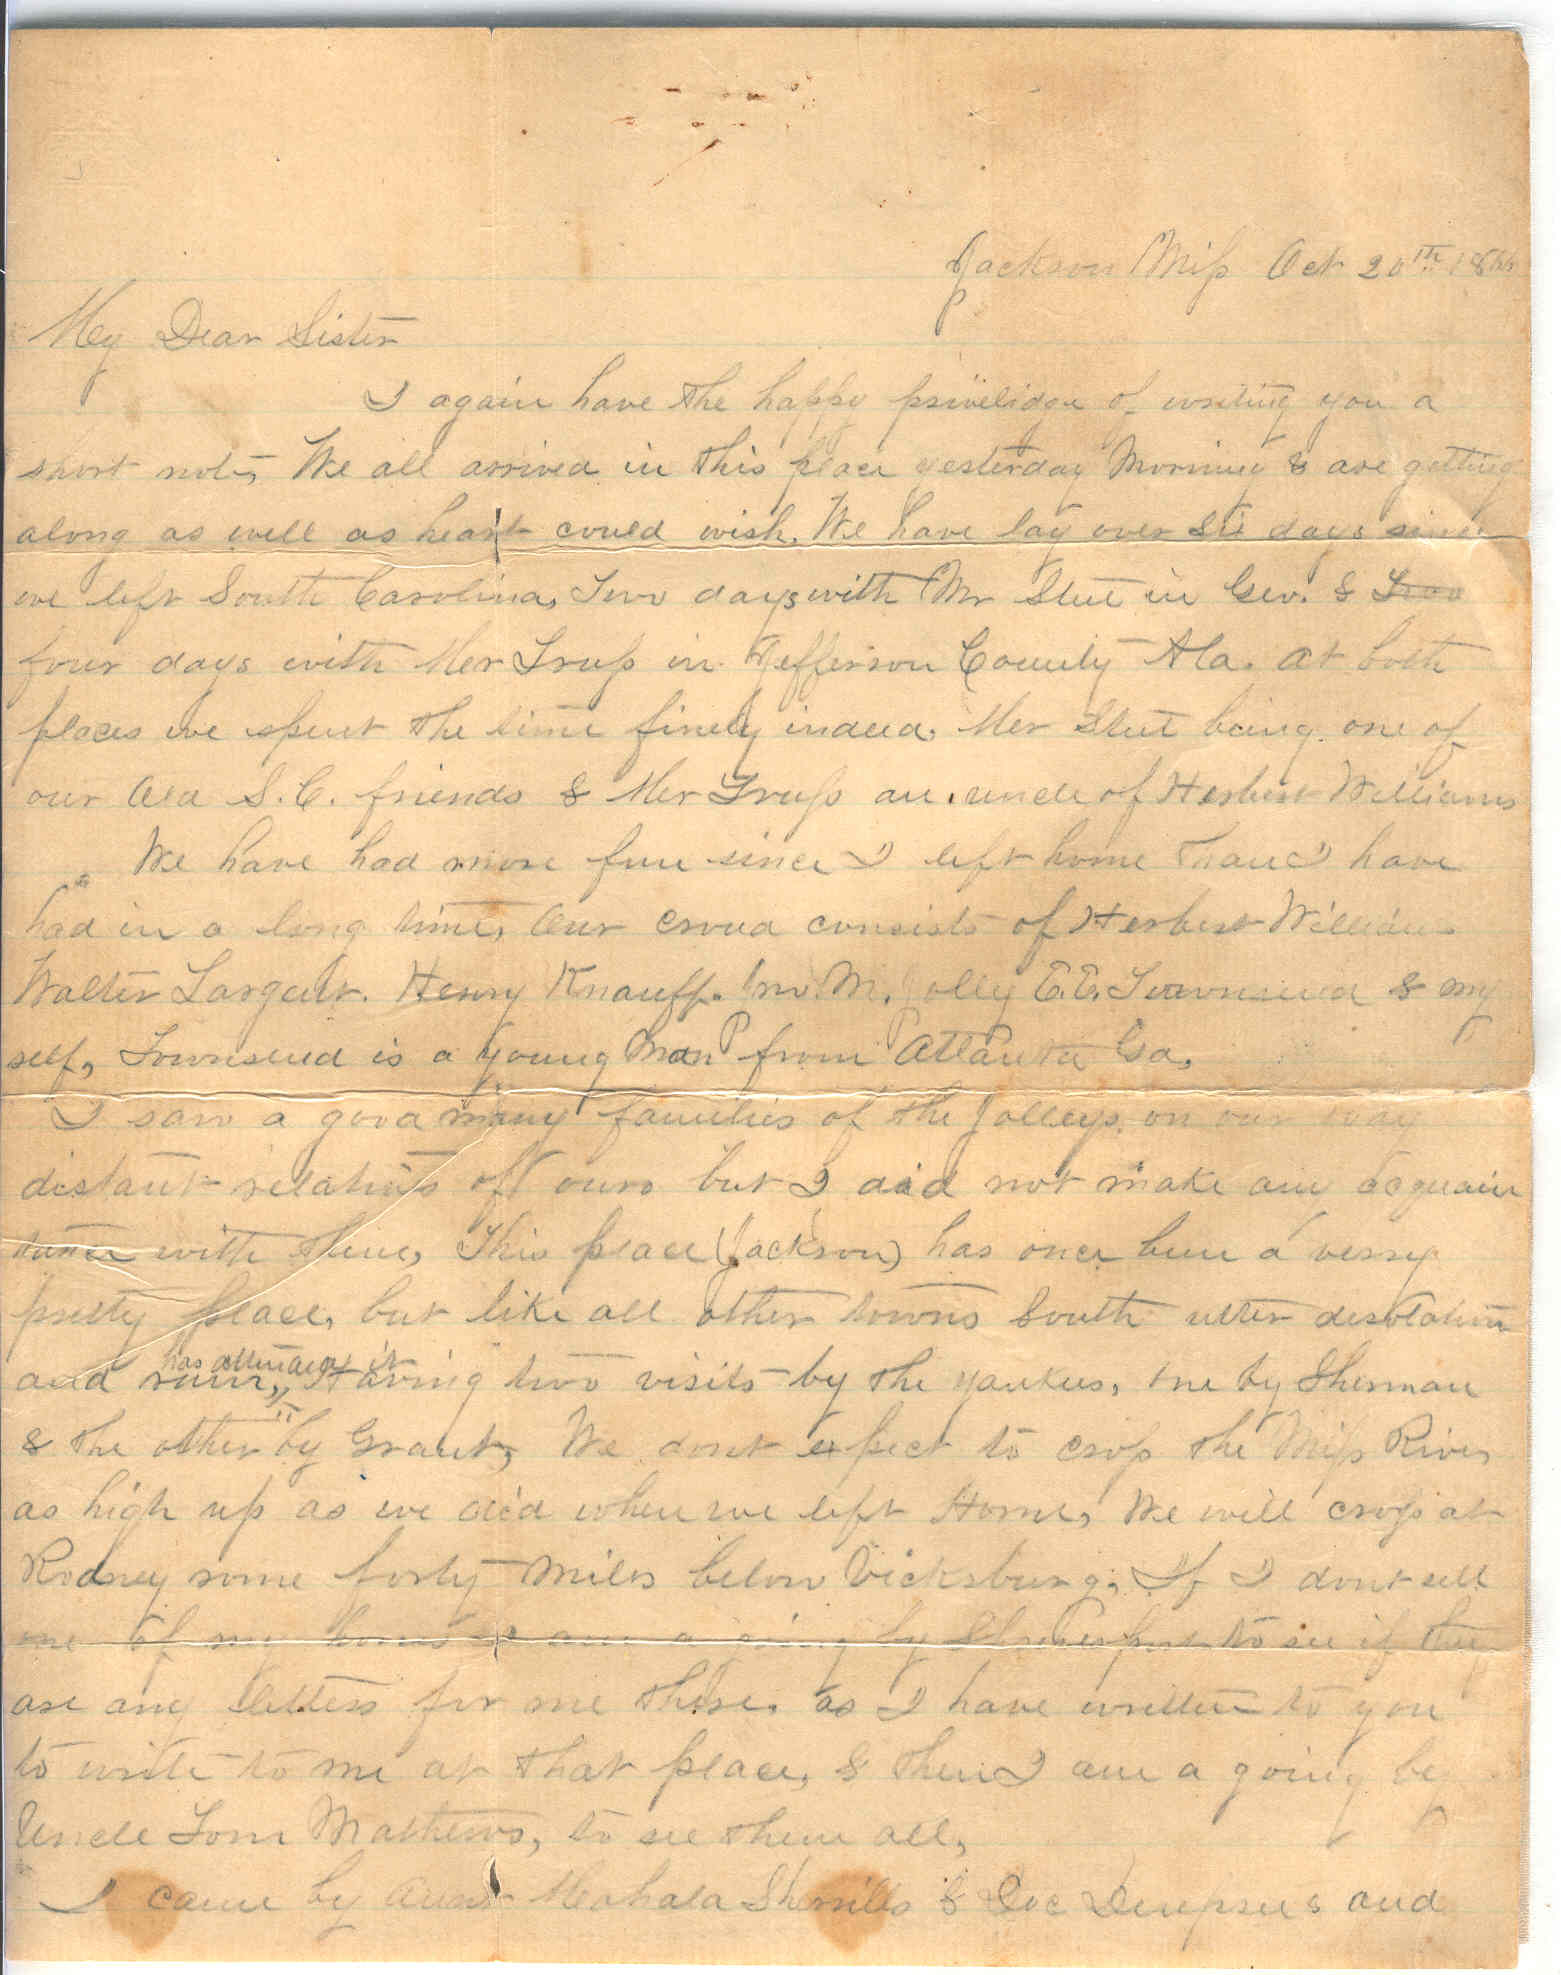 Jackson Miss Oct 20th 1866
My Dear Sister
I again have the happy privelidge of writing you a
short note, We all arrived in this place yesterday Morning & are getting
along as well as heart could wish. We have lay over six days since
we left South Carolina, Two days with Mr Stut in Geo. & Two
four days with Mr Truss in Jefferson County Ala. at both
places we spent the time finely indeed. Mr Stut being one of
our Old S.C. friends & Mr Truss an uncle of Herbert Williams
We have had more fun since I left home than I have
had in a long time, Our croud consists of Herbert Williams
Walter Henry Knauff. Jno. M. Jolly E.E. Townsend & my
self, Townsend is a young Man from Atlanta Ga,
I saw a good many families of the Jolleys on our way
distant relations of ours but I did not make an acquain
tance with them, This place (Jackson) has once been a verry
pretty place, but like all other towns South utter desolation
has attended it
and ruin, Having two visits by the yankees, one by Sherman
& the other by Grant, We dont expect to cross the Miss River
as high up as we did when we left Home, We will cross at
Rodney some forty miles below Vicksburg, If I dont sell
one of my horses I am a going by Shreveport to see if there
are any letters for me there. as I have written to you
to write to me at that place, & then I am a going by
Uncle Tom Mathews, to see them all,
I came by Aunt Mahala Sherrills & Doc Dempsees and